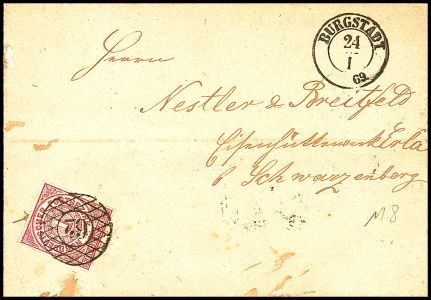 BURGSTÄDT.
24
I
69.
Herrn
Nestler & Breitfeld
Eisenhüttenwerk Erla
b Schwarzenberg
M8